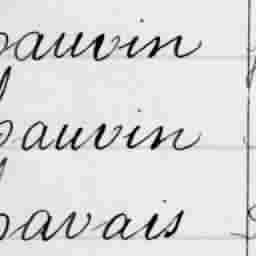 auvin
auvin
avais